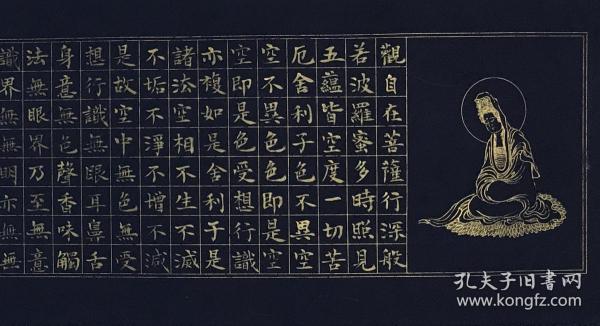 觀自在菩薩行深般
若波羅蜜多時照見
五蘊皆空度一切苦
厄舍利子色不異空
空不異色色即是空
空即是色受想行識
亦複如是舍利子是
諸法空相不生不滅
不垢不淨不增不減
是故空中無色無受
想行識無眼耳鼻舌
身意無色聲香味觸
法無眼界乃至無意
識界無無明亦無無
孔夫子旧書网
www.kongfz.com